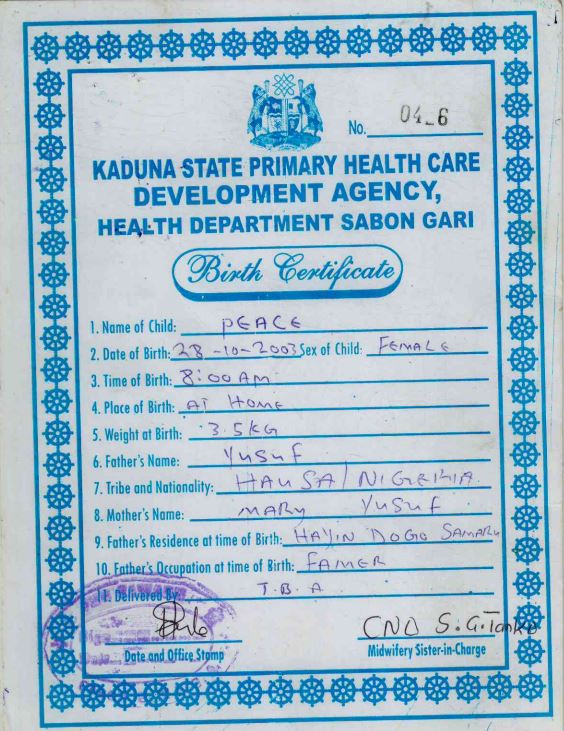 No. 04_6
KADUNA STATE PRIMARY HEALTH CARE
DEVELOPMENT AGENCY,
HEALTH DEPARTMENT SABON GARI
Birth Certificate
1. Name of Child: PEACE
2. Date of Birth: 28-10-2003 Sex of Child: FEMALE
3. Time of Birth: 8:00 AM
4. Place of Birth: AT HOME
5. Weight at Birth: 3.5KG
6. Father's Name: YUSUF
7. Tribe and Nationality: HAUSA/NIGERIA
8. Mother's Name: MARY YUSUF
9. Father's Residence at time of Birth: HAYIN DOGO SAMARU
10. Father's Occupation at time of Birth: FAMER
11. Delivered By: T.B.A
CNO S.G. Tanko
Date and Office Stamp Midwifery Sister-in-Charge